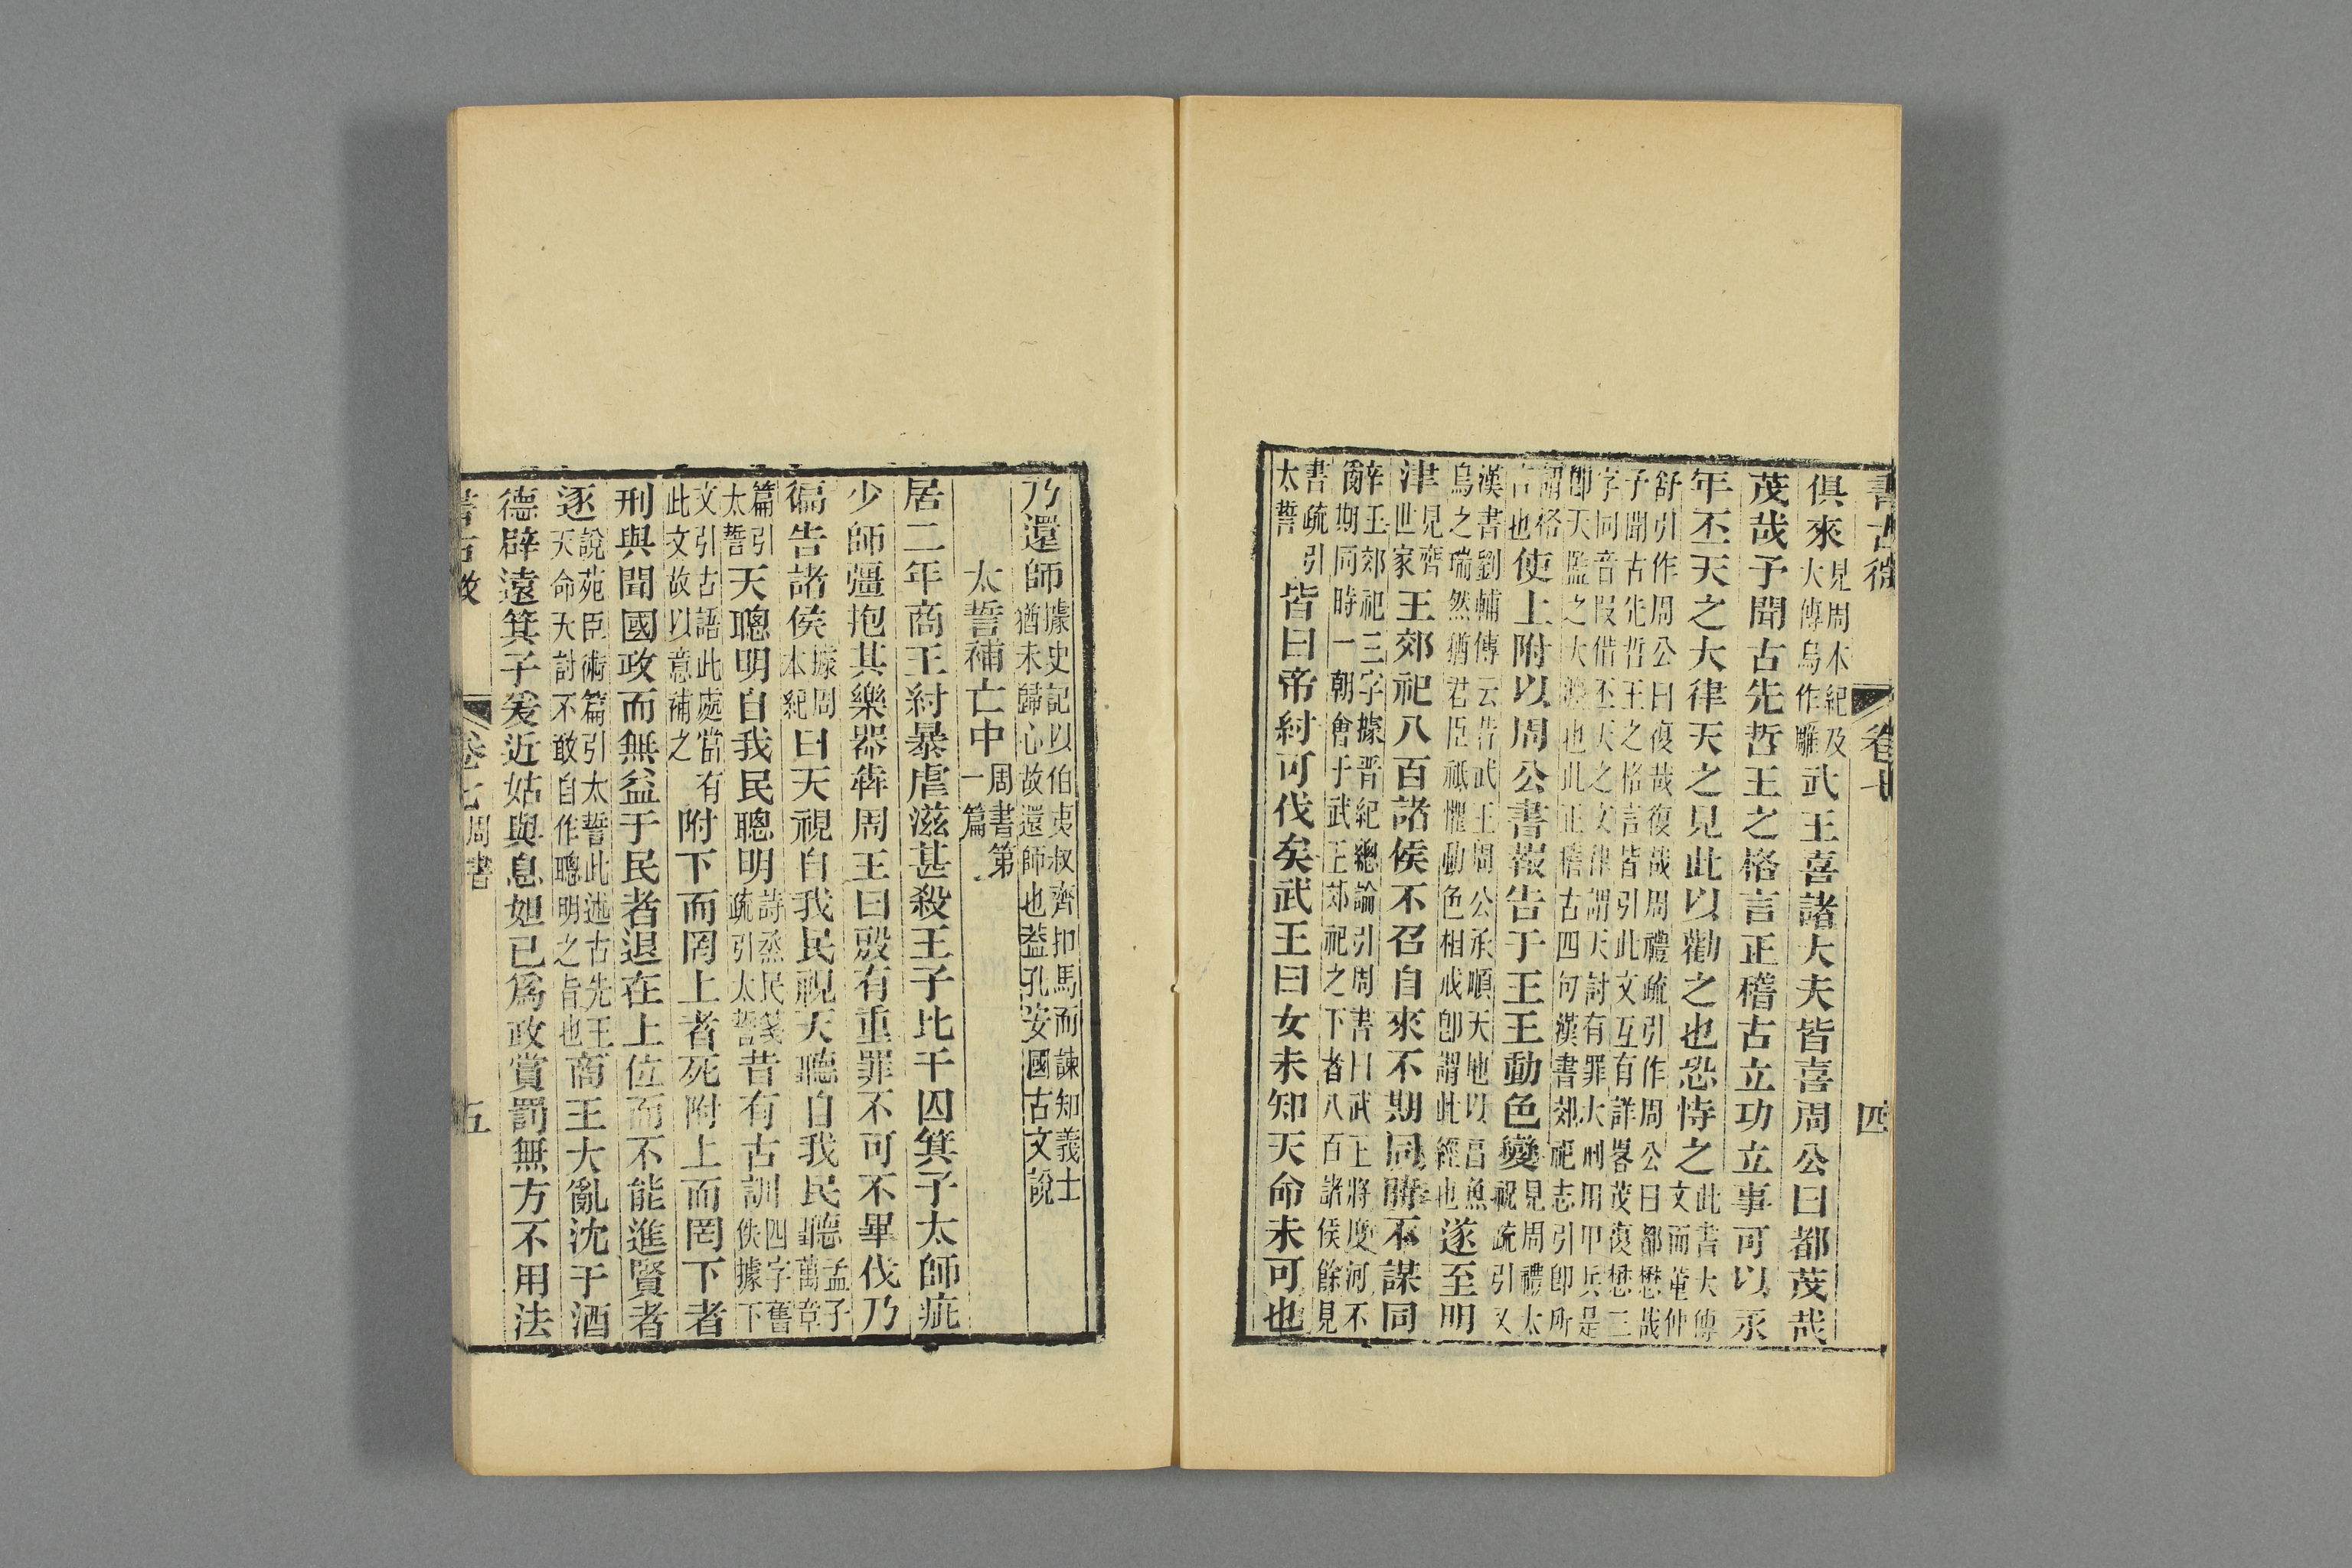 書古微 卷七 四
俱來見周本紀及大傳烏作雕武王喜諸大夫皆喜周公曰都茂哉
茂哉予聞古先哲王之格言正稽古立功立事可以永
年丕天之大律天之見此以勸之也恐恃之此書大傳文而董仲
舒引作周公曰復哉復哉周禮疏引作周公曰都懋哉
子聞古先哲王之格言皆引此文互有詳畧茂復懋三
字同音叚借丕天之文律謂天討有罪大刑用甲兵是
即天監之大律也此正稽古四句漢書郊祀志引即所
謂格言也使上附以周公書報告于王王動色變見周禮太祝疏引又
漢書劉輔傳云昔武王周公承順天地以昌魚
烏之瑞然猶君臣祗懼動色相戒卽謂此經也遂至明
津見齊世家王郊祀八百諸侯不召自來不期同時不謀同
辭王郊祀三字據晋紀總論引周書曰武王將度河不
期同時一朝會于武王郊祀之下者八百諸侯餘見
書疏引太誓皆曰帝紂可伐矣武王曰女未知天命未可也
乃還師據史記以伯夷叔齊扣馬而諫知義士猶未歸心故還師也葢孔安國古文說
太誓補亡中周書第一篇
居二年商王紂暴虐滋甚殺王子比干囚箕子太師疵
少師彊抱其樂器犇周王曰殷有重罪不可不畢伐乃
徧告諸侯據周本紀曰天視自我民視天聽自我民聽孟子萬章
篇引太誓天聰明自我民聰明詩烝民箋疏引太誓昔有古訓四字舊佚據下
文引古語此處當有此文故以意補之附下而罔上者死附上而罔下者
刑與聞國政而無益于民者退在上位而不能進賢者
逐說苑臣術篇引太誓此述古先王天命天討不敢自作聰明之旨也商王大亂沈于酒
德辟遠箕子爰近姑與息妲己爲政賞罰無方不用法
書古微 卷七 周書 五